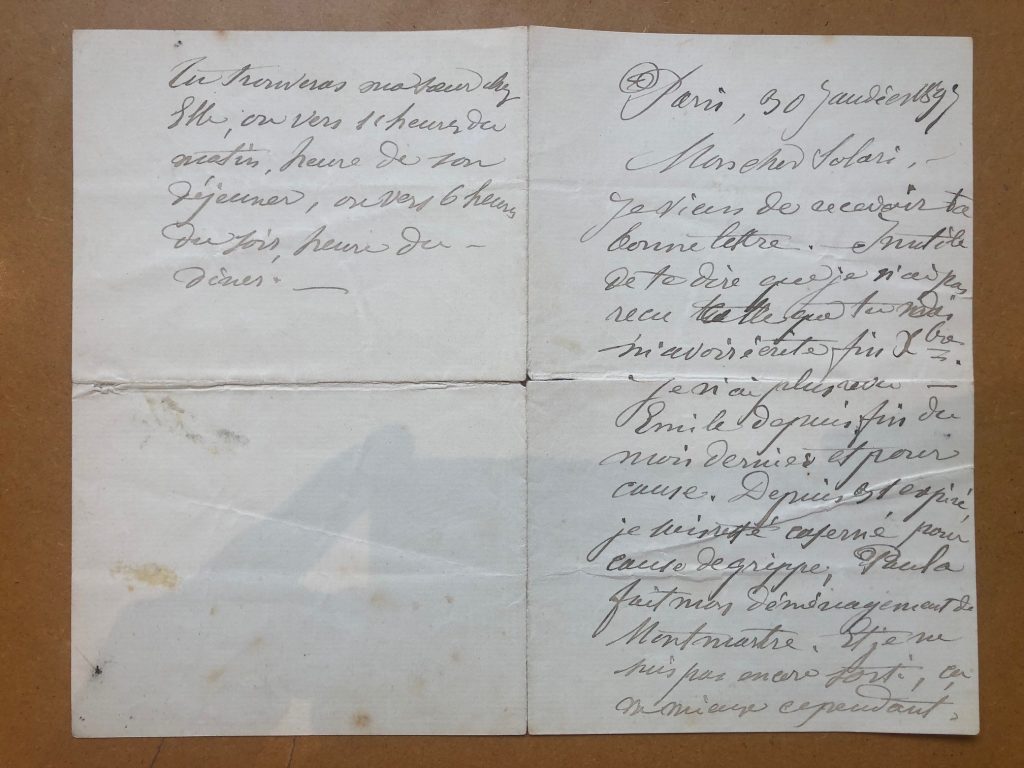 Paris, 30 Janvier 1897
Mon cher Solari, –
Je viens de recevoir ta
bonne lettre. – Inutile
de te dire que je n'ai pas
recu celle que tu me dis
m'avoir écrite fin Xbre.
Je n'ai plus revu –
Emile depuis fin du
mois dernier et pour
cause. Depuis expiré,
je suis resté caserné pour
cause de grippe, Paul a
fait mon déménagement de
Montmartre. Et je ne
suis pas encore sorti, ça
va mieux cependant.
Tu trouveras ma sœur chez
Elle, ou vers 11 heures du
matin, heure de son
déjeuner, ou vers 6 heures
du soir, heure du –
dîner. —